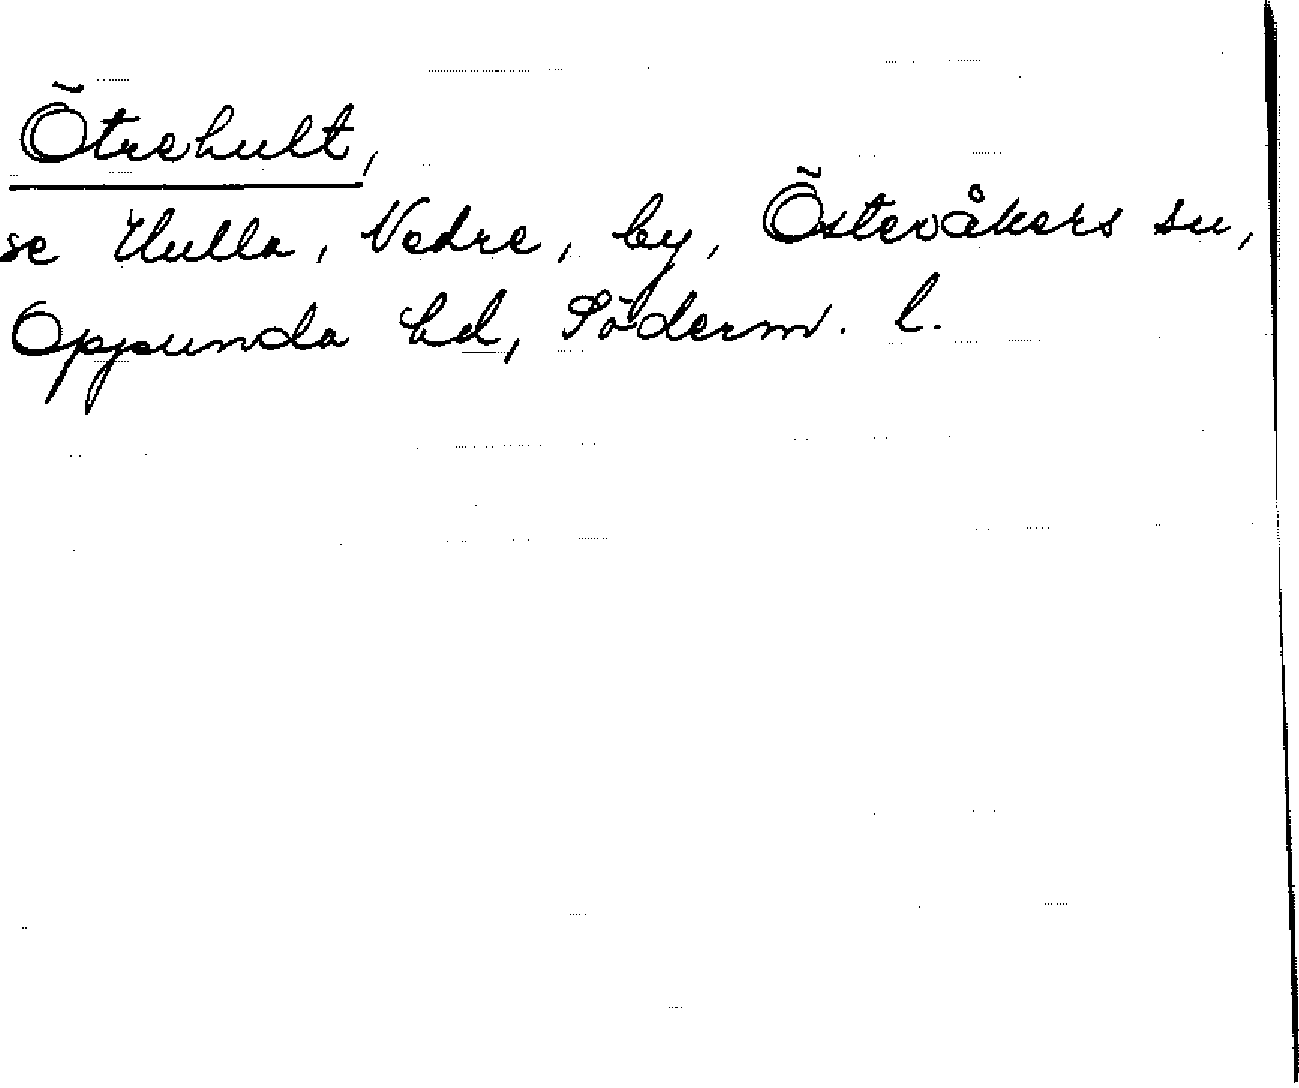 Ötrehult,
se Hulla, Nedre, by, Österåkers sn,
Oppunda hd, Söderm. l.